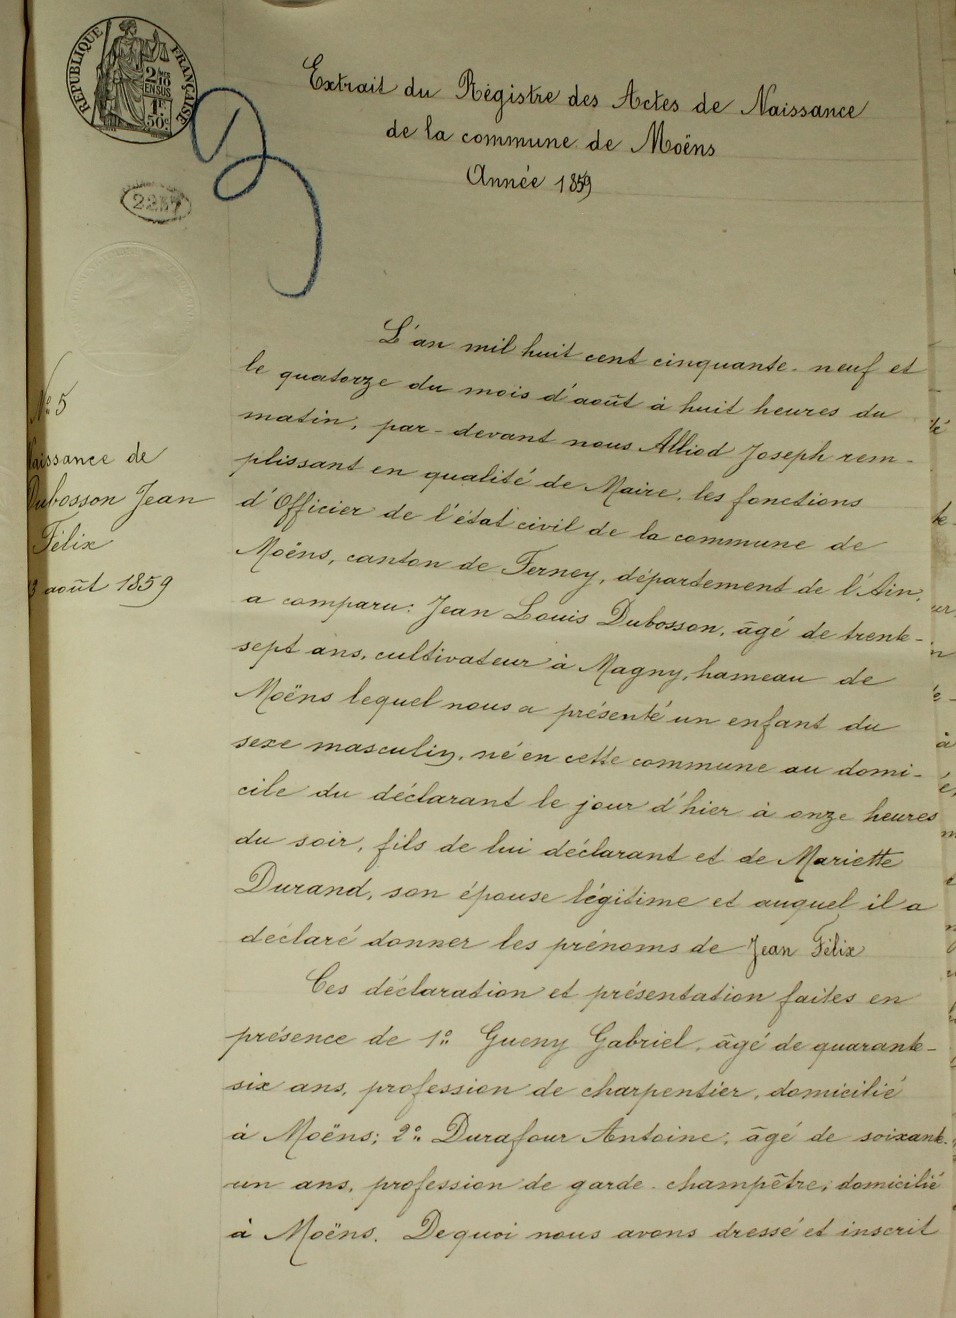 RÉPUBLIQUE FRANÇAISE
2/10
EN SUS
1F.
50c.
2257
Extrait du Régistre des Actes de Naissance
de la commune de Moëns
Année 1859
N° 5
Naissance de
Dubosson Jean
Félix
13 août 1859
L'an mil huit cent cinquante-neuf et
le quatorze du mois d'août à huit heures du
matin, par-devant nous Alliod Joseph rem-
plissant en qualité de Maire, les fonctions
d'Officier de l'état civil de la commune de
Moëns, canton de Ferney, département de l'Ain,
a comparu: Jean Louis Dubosson, âgé de trente-
sept ans, cultivateur à Magny, hameau de
Moëns lequel nous a présenté un enfant du
sexe masculin, né en cette commune au domi-
cile du déclarant le jour d'hier à onze heures
du soir, fils de lui déclarant et de Mariette
Durand, son épouse légitime et auquel il a
déclaré donner les prénoms de Jean Félix
Ces déclaration et présentation faites en
présence de 1° Gueny Gabriel, âgé de quarante-
six ans, profession de charpentier, domicilié
à Moëns; 2° Durafour Antoine, âgé de soixante-
un ans, profession de garde-champêtre, domicilié
à Moëns. De quoi nous avons dressé et inscrit